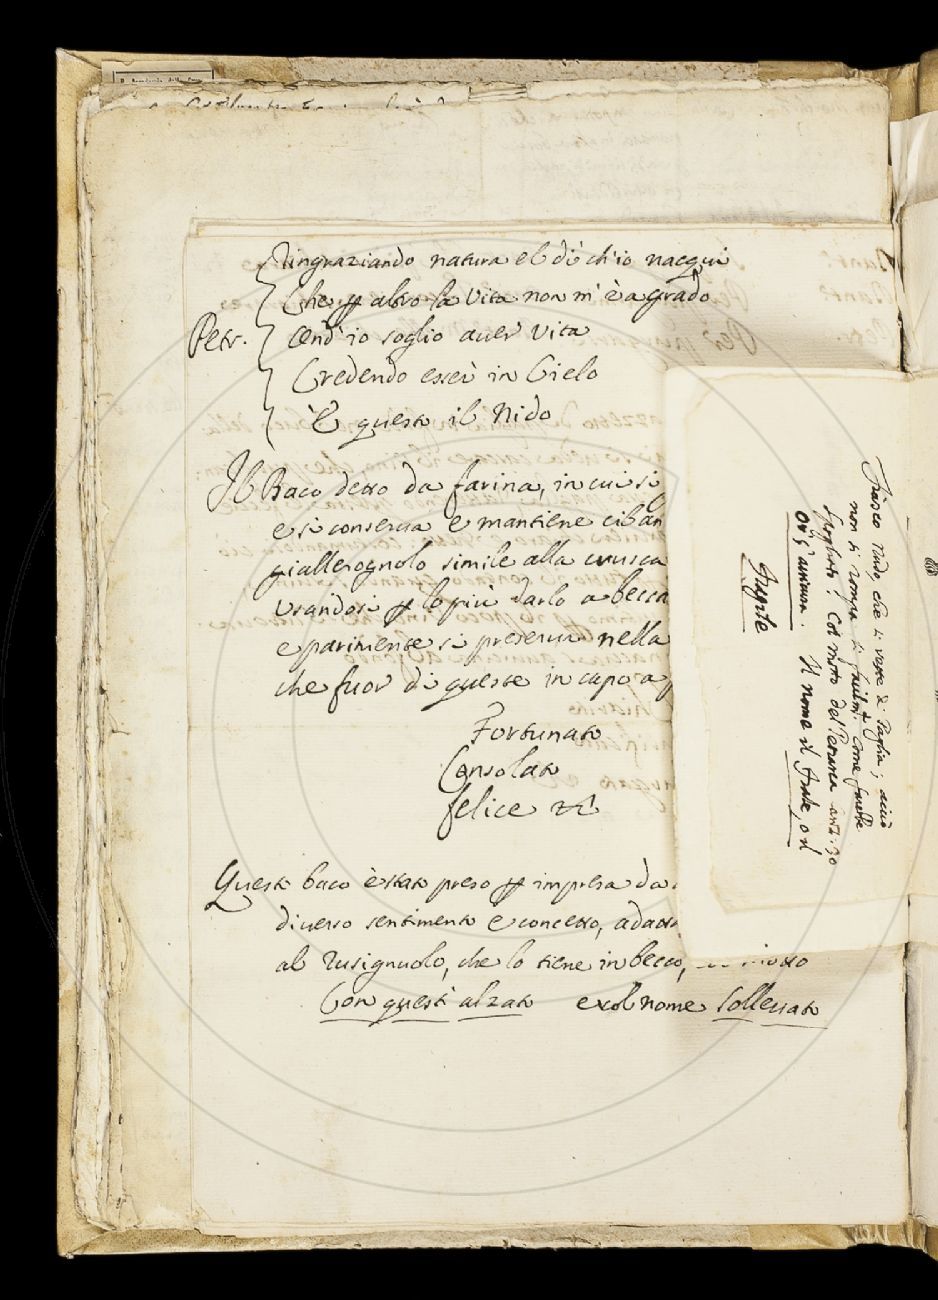 Ringraziando natura el dì ch'io nacqui
Che p altro la Vita non m'è a grado
Petr. Ond'io soglio auer Vita
Credendo esser in Cielo
È questo il Nido
Il Baco detto da farina, in cui si
e si conserua e mantiene ciban
giallerognolo simile alla crusca
Usandosi p lo più darlo a becca
e parimente si preserua nella
che fuor di queste in capo a
Fortunato
Consolato
felice
Questo baco è stato preso p impresa da
diuerso sentimento e concetto, adatta
al Rusignuolo, che lo tiene in becco, motto
Con questi alzato e col nome Solleuato
fiasco nudo, che si veste di Paglia; acciò
non si rompa sì come
Col motto del Petrarca 30
Il nome il Frale, o il
Fragile